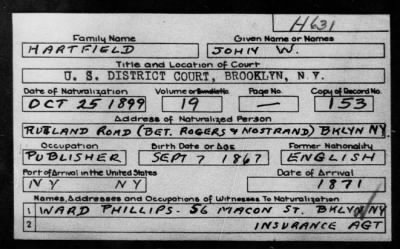 H631
Family Name Given Name or Names
HARTFIELD JOHN W.
Title and Location of Court
U. S. DISTRICT COURT, BROOKLYN, N.Y.
Date of Naturalization Volume or Bundle No. Page No. Copy of Record No.
OCT 25 1899 19 — 153
Address of Naturalized Person
RUTLAND ROAD (BET. ROGERS & NOSTRAND) BKLYN NY
Occupation Birth Date or Age Former Nationality
PUBLISHER SEPT 7 1867 ENGLISH
Port of Arrival in the United States Date of Arrival
NY NY 1871
Names, Addresses and Occupations of Witnesses To Naturalization
1 WARD PHILLIPS - 56 MACON ST. BKLYN NY
2 INSURANCE AGT